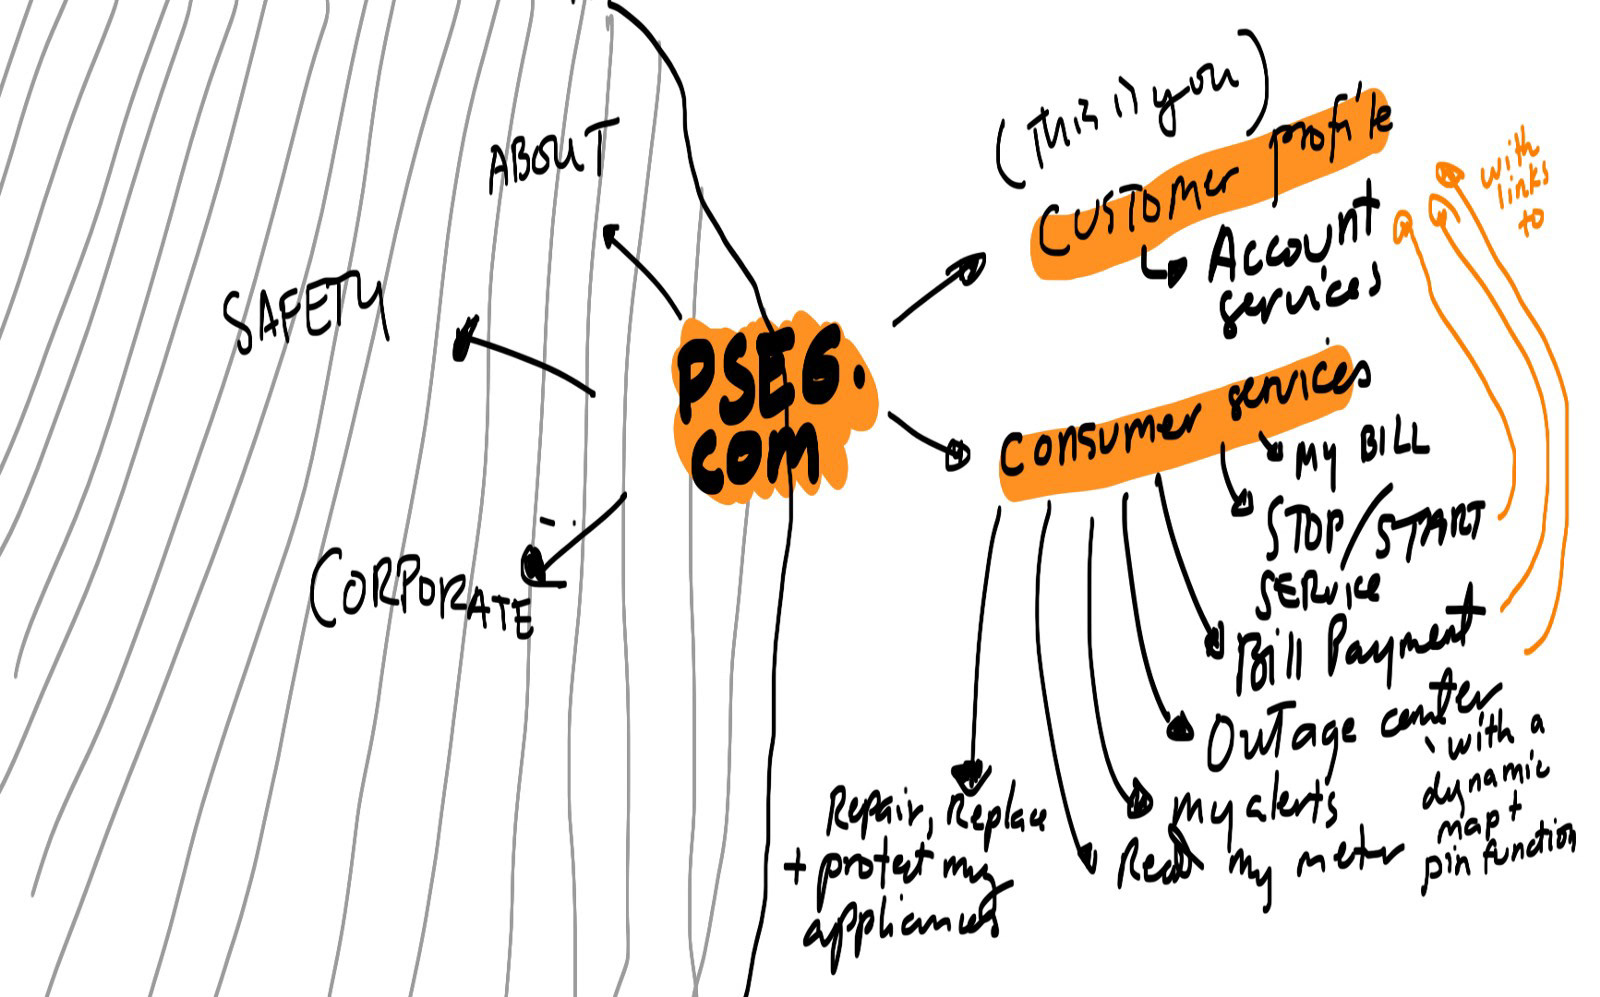 ABOUT
SAFETY
CORPORATE
PSEG.
COM
(This is you)
CUSTOMER profile
Account
services
with
links
to
Consumer services
MY BILL
STOP/START
SERVICE
Bill Payment
Outage center
with a
dynamic
map +
pin function
My alerts
Read my meter
Repair, Replace
+ protect my
appliances